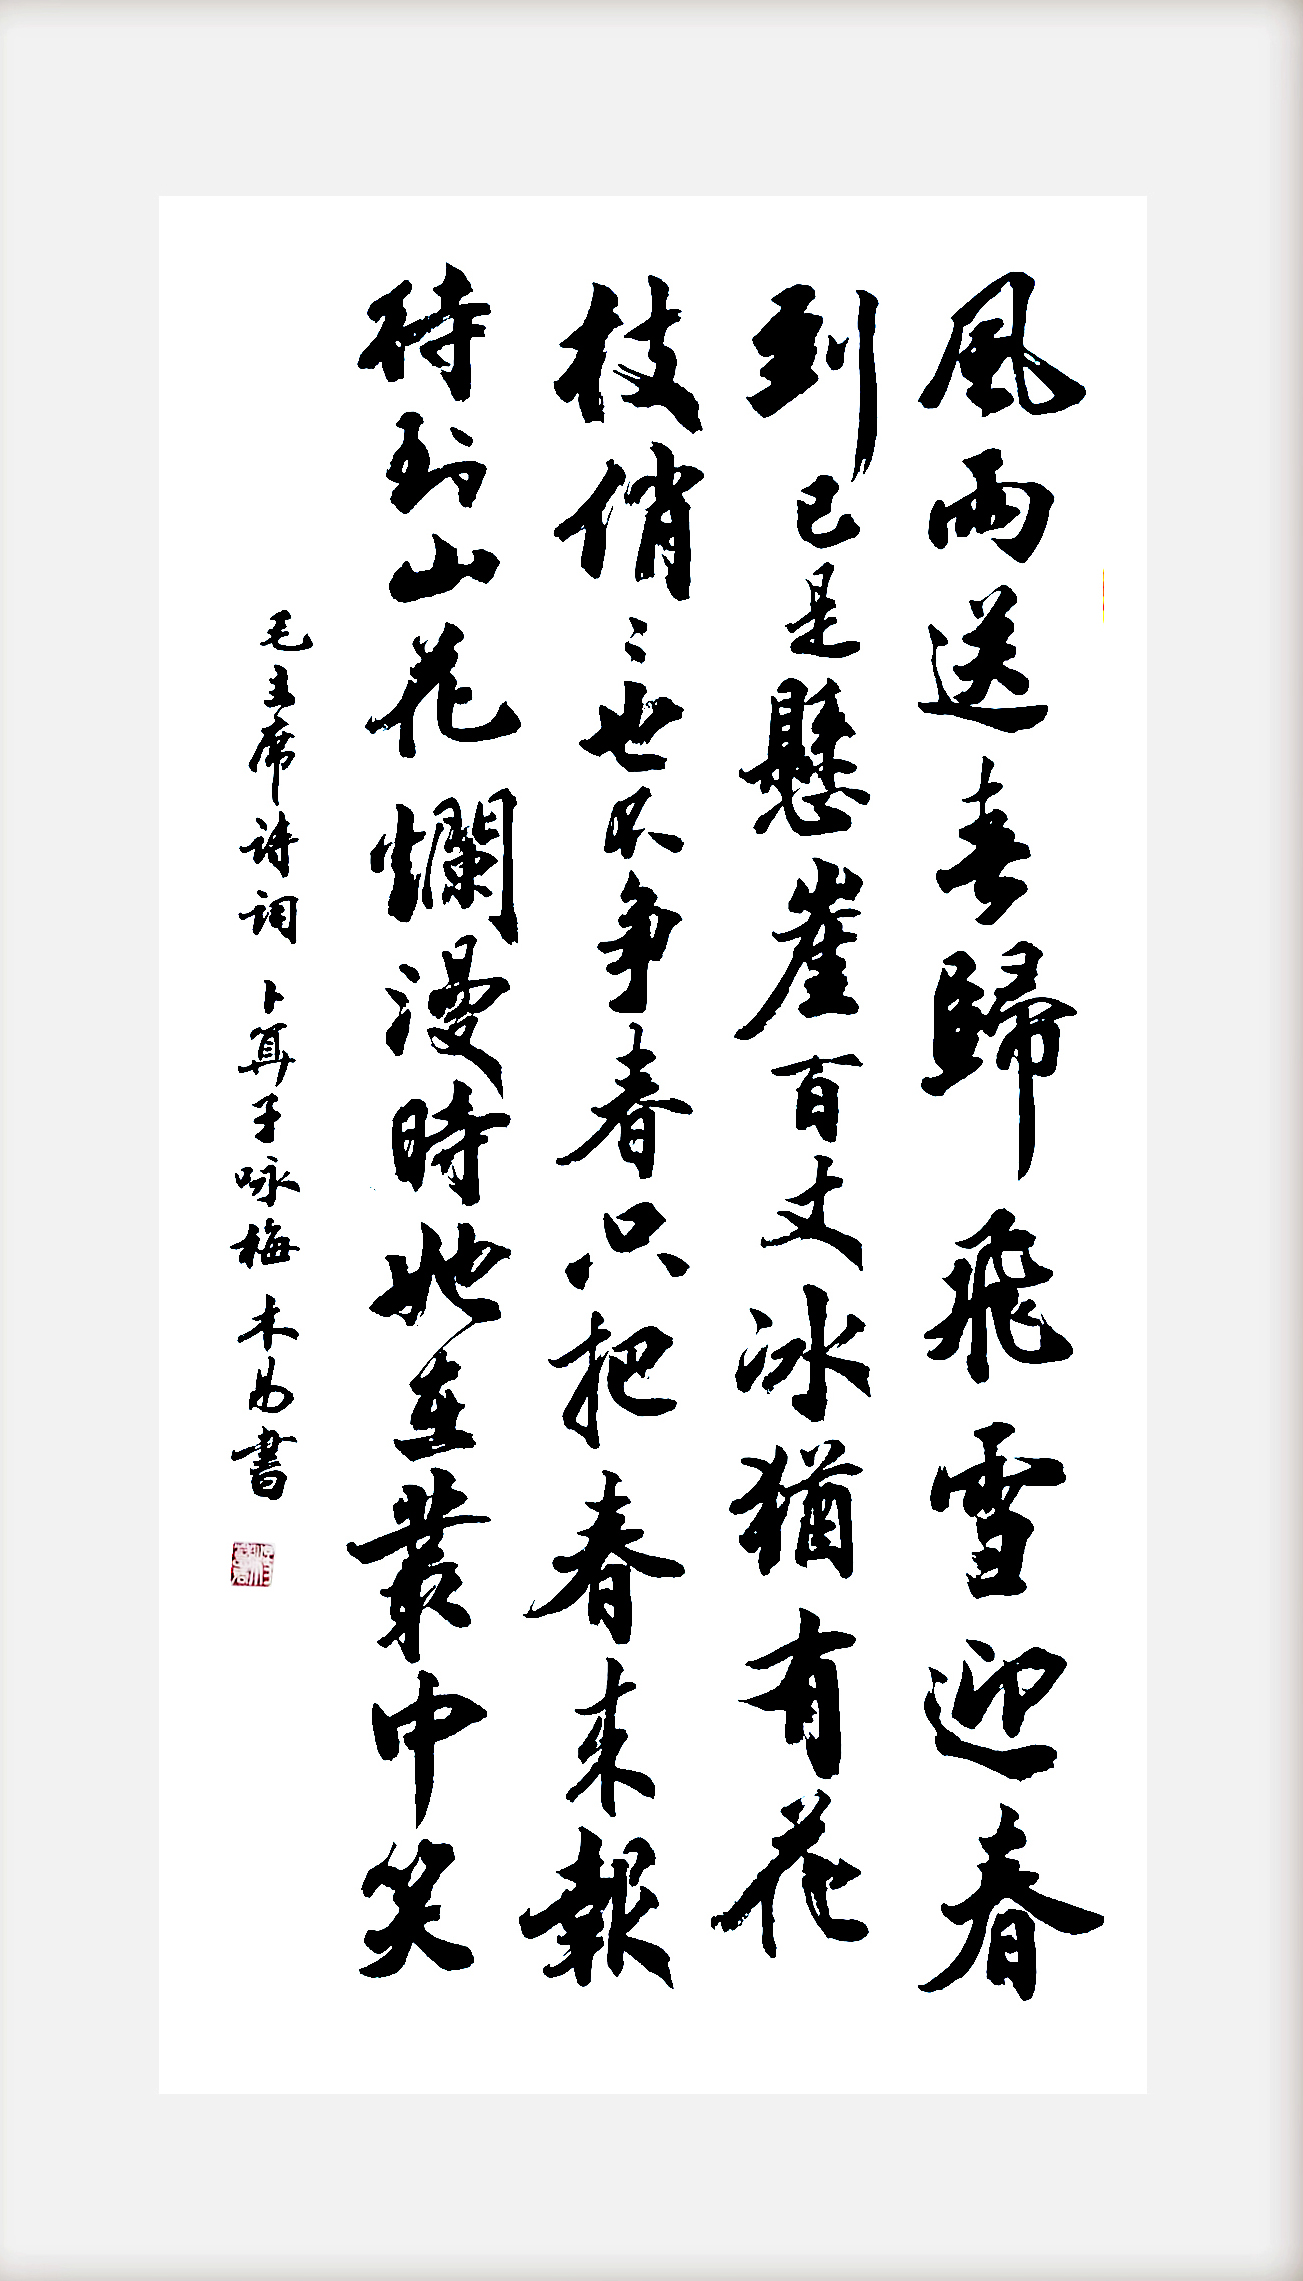 風雨送春歸飛雪迎春
到已是懸崖百丈冰猶有花
枝俏〻也不争春只把春来報
待到山花爛漫時她在叢中笑
毛主席诗词 卜算子咏梅 木易書